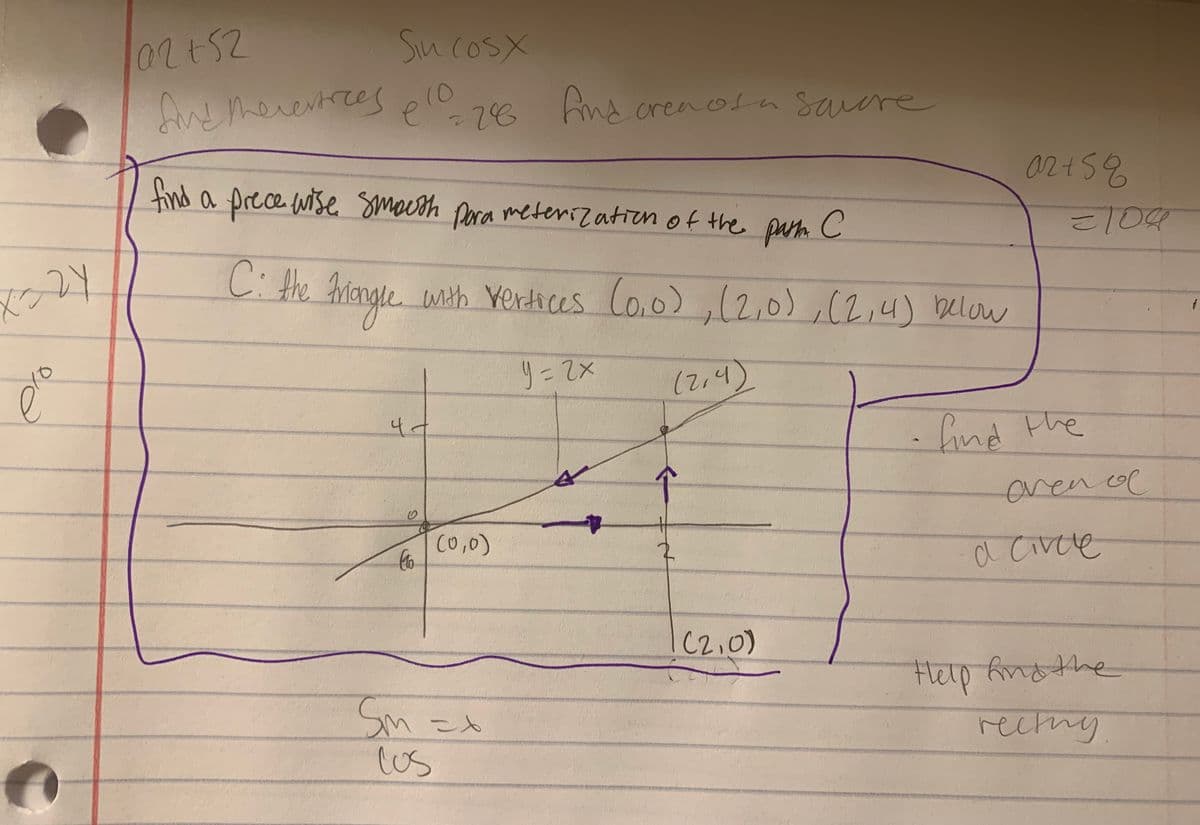 a2+52
Sin cosx
find the vertices e^10 = 28 find area of a square
a2+58
=104
find a precewise smooth parameterization of the path C
x=2y
C: the triangle with vertices (0,0), (2,0), (2,4) below
e^10
y=2x
(2,4)
4
find the
0
area of
(0,0)
2
a circle
(2,0)
Help find the
Sin = x
cos